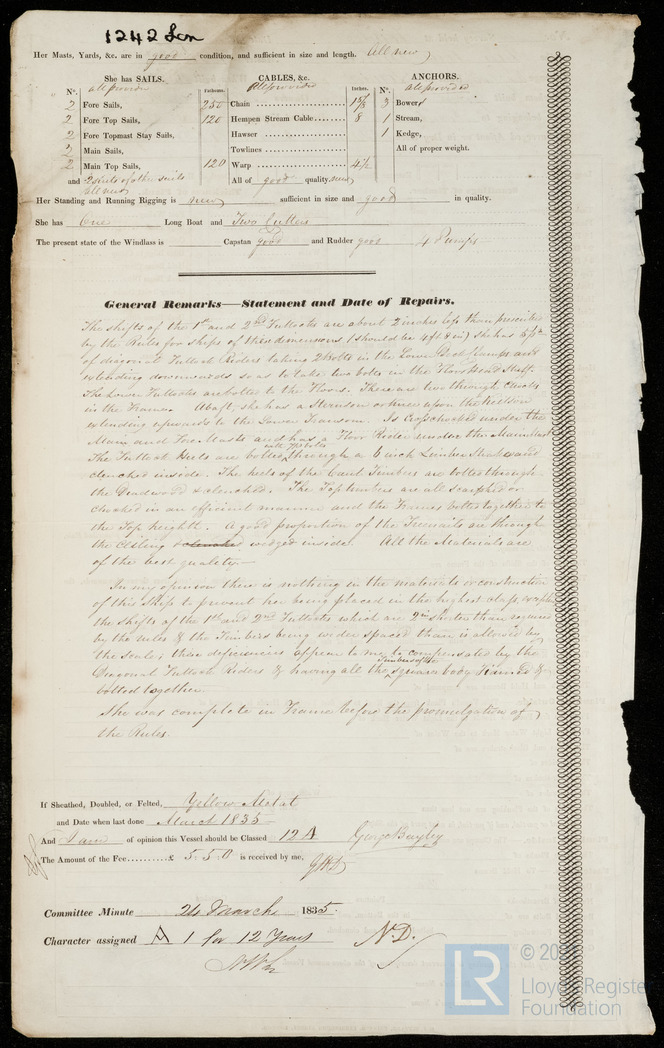 1242 Lon
Her Masts, Yards, &c. are in good condition, and sufficient in size and length. All new
She has SAILS. CABLES, &c. ANCHORS.
all provided All provided All provided
Nº. Fathoms. Inches. Nº.
2 Fore Sails, Chain 250 1 5/8 3 Bowers
2 Fore Top Sails, Hempen Stream Cable 120 8 1 Stream,
2 Fore Topmast Stay Sails, Hawser 1 Kedge,
2 Main Sails, Towlines All of proper weight.
2 Main Top Sails, Warp 120 4 1/2
and 2 suits of other sails All of good quality. new
All new
Her Standing and Running Rigging is new sufficient in size and good in quality.
She has One Long Boat and Two Cutters
The present state of the Windlass is Capstan good and Rudder good 4 Pumps
General Remarks—Statement and Date of Repairs.
The shifts of the 1st and 2nd Futtocks are about 2 inches less than prescribed
by the Rules for ships of these dimensions (should be 4 ft 8 in) she has
of diagonal Futtock Riders taking 2 bolts in the Lower Deck Clamps and
extending downwards so as to take two bolts in the Floorhead Strake.
The Lower Futtocks are bolted to the Floors. There are two through chocks
in the Frames. Abaft, she has a Sternson or knee upon the keelson
extending upwards to the Lower Transom. Is Crosschocked under the
Main and Fore Masts and has a Floor Rider under the Main Mast
The Futtock Heels are bolted through a 6 inch Limber Strake and
clenched inside. The heels of the Cant Timbers are bolted through
the Deadwood & clenched. The Toptimbers are all scarphed or
chocked in an efficient manner and the Frames bolted together to
the Top height. A good proportion of the Treenails are through
the Ceiling & clenched wedged inside. All the Materials are
of the best quality
In my opinion there is nothing in the materials or construction
of this Ship to prevent her being placed in the highest class except
the shifts of the 1st and 2nd Futtocks which are 2 in shorter than required
by the rules & the Timbers being wider spaced than is allowed by
the scale; these deficiencies appear to me to be compensated by the
Timbers of the
Diagonal Futtock Riders & having all the square body Framed &
bolted together.
She was complete in Frame before the promulgation of
the Rules.
If Sheathed, Doubled, or Felted, Yellow Metal
and Date when last done March 1835
And I am of opinion this Vessel should be Classed 12 A George Bayley
The Amount of the Fee £ 5.5.0 is received by me,
Committee Minute 24 March 1835.
Character assigned A 1 for 12 Years N.D.
LR
Lloyd's Register
Foundation